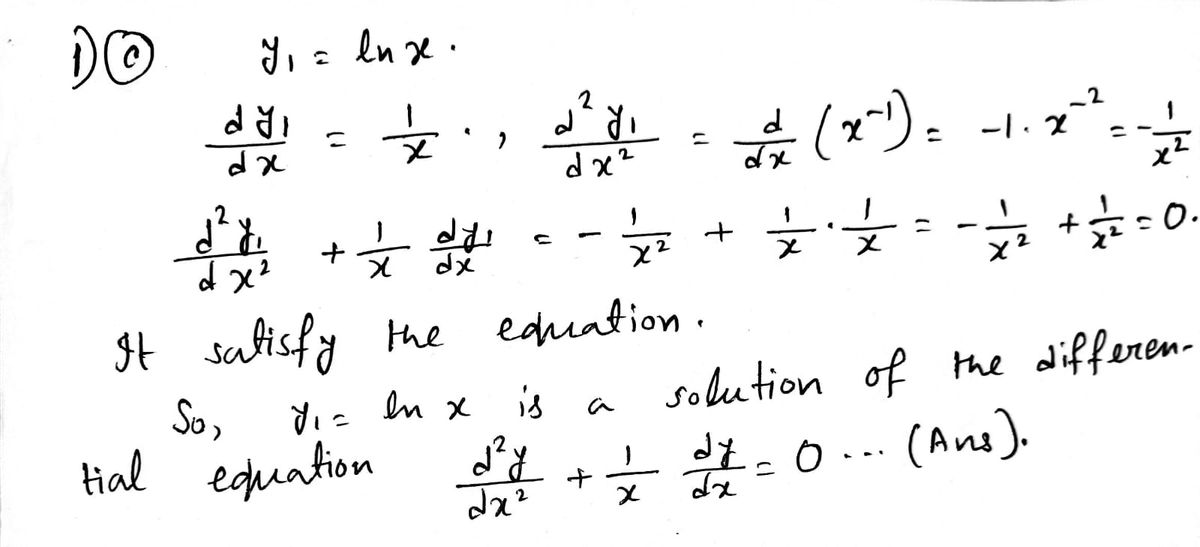 1) ⓒ y₁ = ln x .
dy₁/dx = 1/x . , d²y₁/dx² = d/dx (x⁻¹) = -1. x⁻² = - 1/x²
d²y₁/dx² + 1/x dy₁/dx = - 1/x² + 1/x . 1/x = - 1/x² + 1/x² = 0.
It satisfy the equation.
So, y₁ = ln x is a solution of the differen-
tial equation d²y/dx² + 1/x dy/dx = 0 ... (Ans).